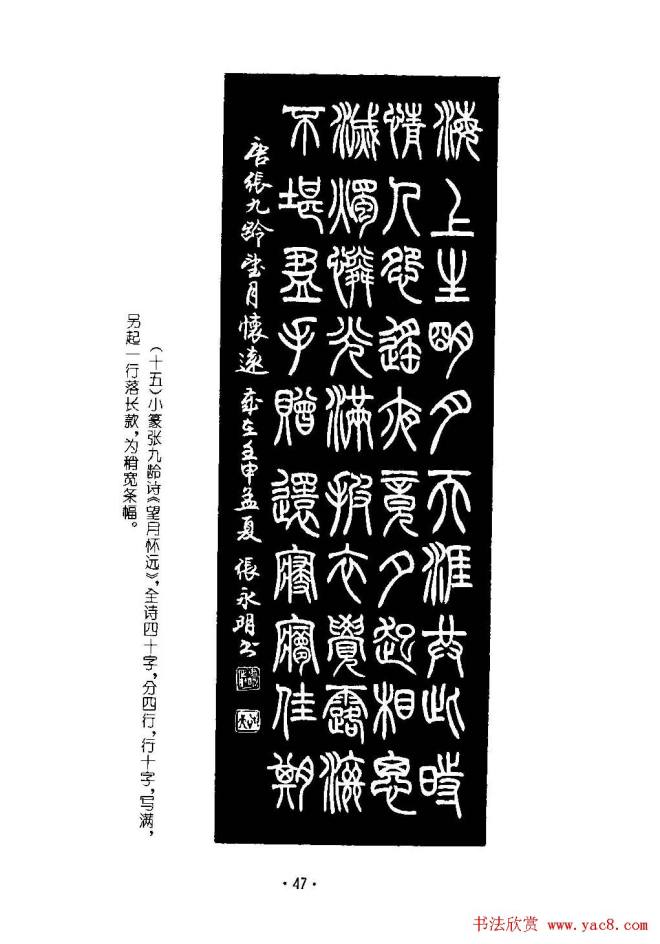 海上生明月天涯共此時
情人怨遙夜竟夕起相思
滅燭憐光滿披衣覺露滋
不堪盈手贈還寢夢佳期
唐張九齡望月懷遠 歲在壬申孟夏 張永明書
（十五）小篆张九龄诗《望月怀远》，全诗四十字，分四行，行十字，写满，
另起一行落长款，为稍宽条幅。
·47·
书法欣赏 www.yac8.com